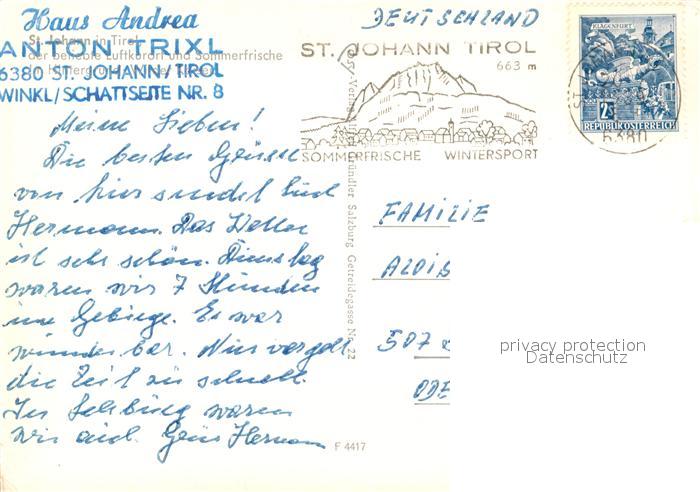 Haus Andrea
St. Johann in Tirol
ANTON TRIXL
der beliebte Luftkurort und Sommerfrische
6380 ST. JOHANN/TIROL
WINKL/SCHATTSEITE NR. 8
Meine Lieben!
Die besten Grüsse
von hier sendet Euch
Hermann. Das Wetter
ist sehr schön. Dienstag
waren wir 7 Stunden
im Gebirge. Es war
wunderbar. Nur vergeht
die Zeit zu schnell.
In Salzburg waren
wir auch. Hermann
F 4417
Gründler Salzburg Getreidegasse No. 22
DEUTSCHLAND
ST. JOHANN TIROL
663 m
SOMMERFRISCHE WINTERSPORT
KLAGENFURT
2S
REPUBLIK ÖSTERREICH
6380
FAMILIE
ALOIS
507
ODE
privacy protection
Datenschutz